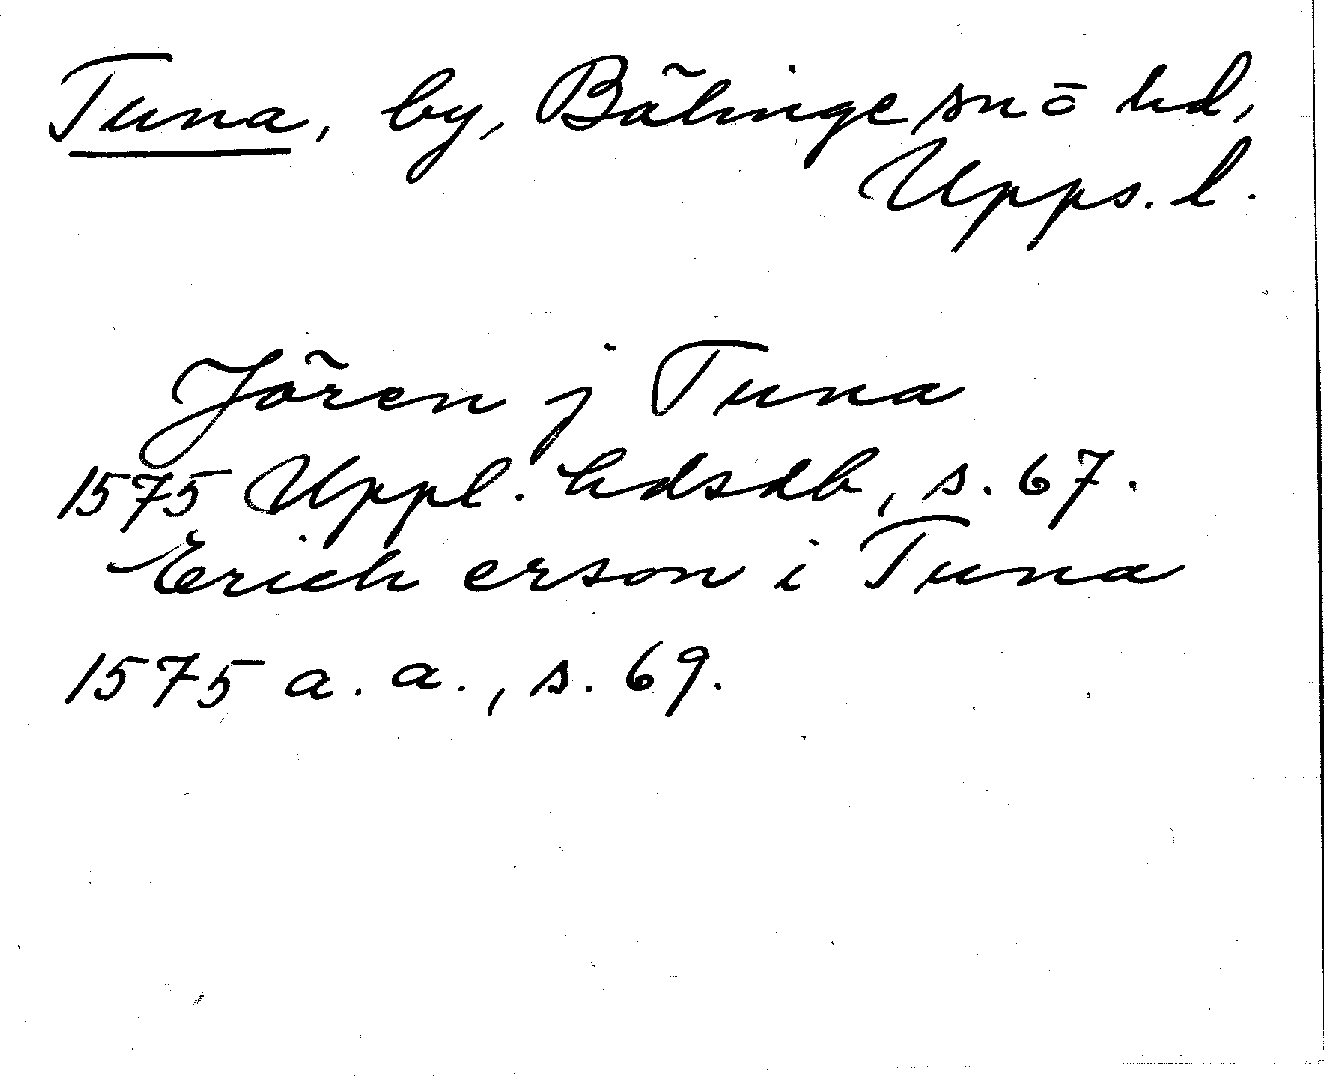 Tuna, by, Bälinge sn ō hd,
Upps. l.
Jören j Tuna
1575 Uppl. hdsdb, s. 67.
Erich erson i Tuna
1575 a. a., s. 69.